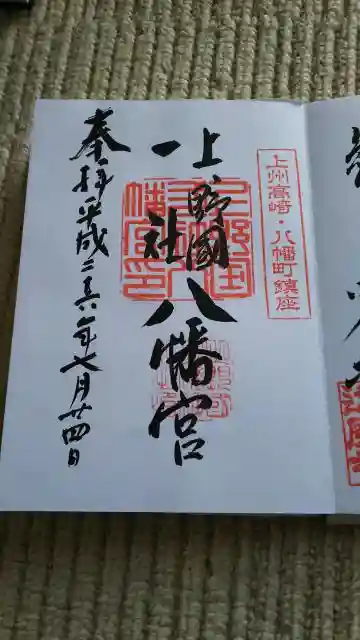 上州高崎・八幡町鎮座
上野國
一社
八幡宮
奉拝平成二六年七月廿四日